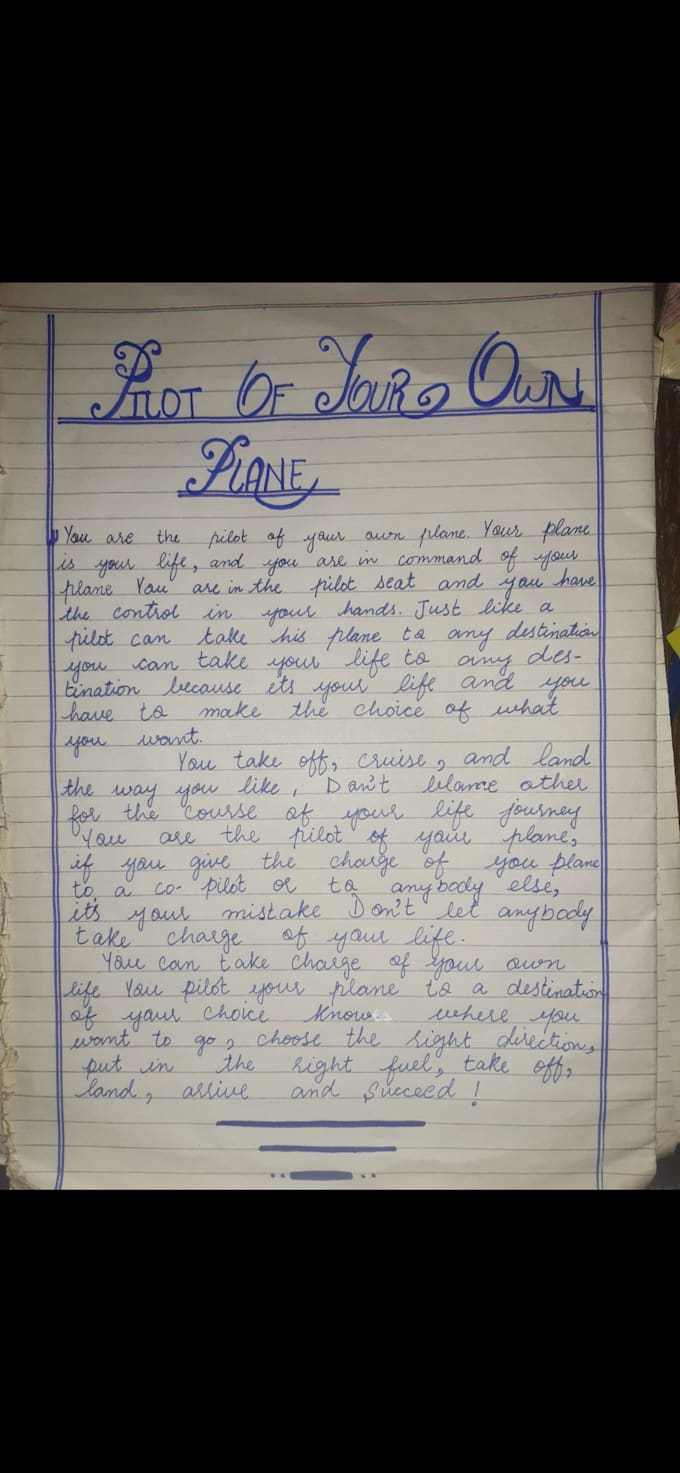 PILOT OF YOUR OWN
PLANE
You are the pilot of your own plane. Your plane
is your life, and you are in command of your
plane You are in the pilot seat and you have
the control in your hands. Just like a
pilot can take his plane to any destination
you can take your life to any des-
tination because its your life and you
have to make the choice of what
you want.
You take off, cruise, and land
the way you like, Don't blame other
for the course of your life journey
You are the pilot of your plane,
if you give the charge of you plane
to a co-pilot or to anybody else,
it's your mistake Don't let anybody
take charge of your life.
You can take charge of your own
life You pilot your plane to a destination
of your choice Know where you
want to go, choose the right direction,
put in the right fuel, take off,
land, arrive and succeed!